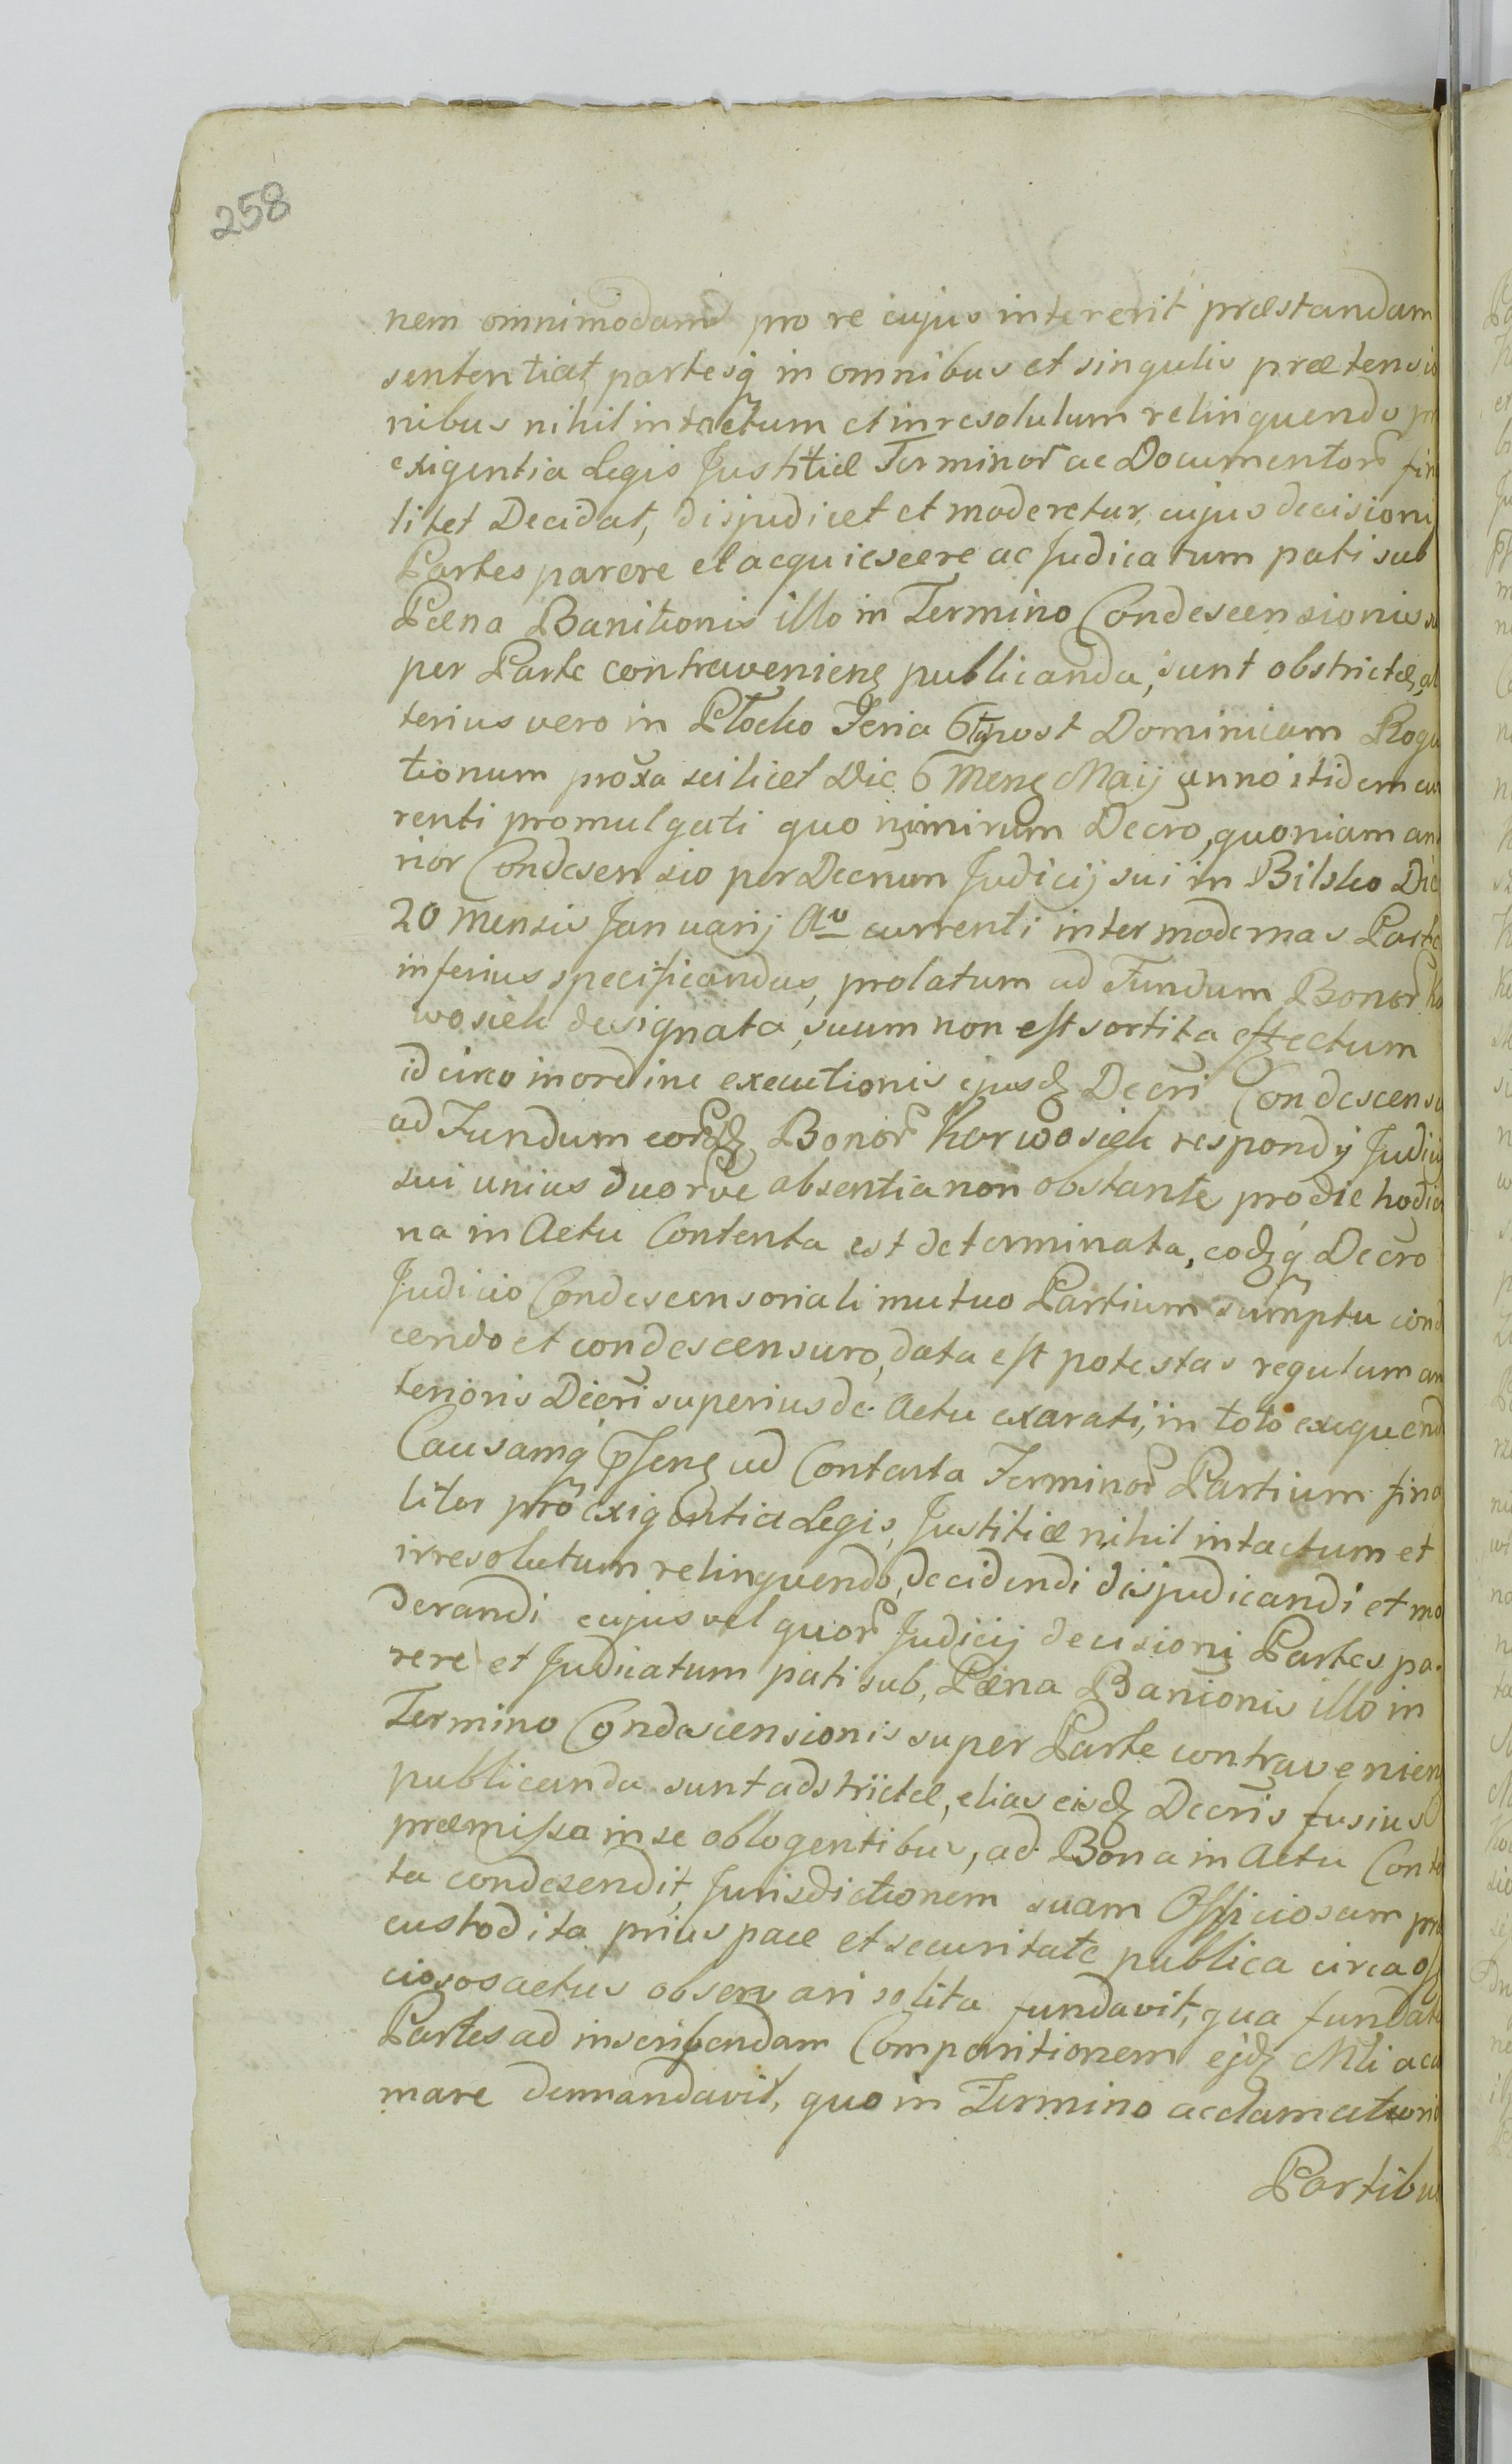 258
nem omnimodam pro re cujus intererit præstandam
sententiat partesq in omnibus et singulis prætensio
nibus nihil intactum et inresolutum relinquendo
exigentia Legis Justitiæ Terminor ac Documentor fin
litet Decidat, disjudicet et moderetur, cujus decisioni
Partes parere et acquiescere ac Judicatum pati sub
Pæna Banitionis illo in Termino Condescensionis su
per Parte contravenienς publicanda, sunt obstrictæ, al
terius vero in Plocko Feria 6ta post Dominicam Roga
tionum proxa scilicet Die 6 Menς Maij anno itidem cur
renti promulgati quo nimirum Decro, quoniam an
rior Condesensio per Decrum Judicij sui in Bilsko Die
20 Mensis Januarij Ao currenti inter modernas Parte
inferius specificandas, prolatum ad Fundum Bonor Ka
wosiek designata, suum non est sortita effectum
idcirco in ordine executionis ejusdς Decri Condescensu
ad Fundum eordς Bonor Karwosiek respondij Judicij
sui unius duorve absentia non obstante pro die hodier
na in Actu Contenta est determinata, eodςq Decro
Judicio Condescensoriali mutuo Partium sumptu cond
cendo et condescensuro, data est potestas regulam an
terioris Decri superius de Actu exarati, in toto exequend
Causamq pſenς ad Contenta Terminor Partium fina
liter pro exigentia Legis, Justitiæ nihil intactum et
irresolutum relinquendo, decidendi disjudicandi et mo
derandi cujus vel quor Judicij decisioni Partes pa.
rere et Judicatum pati sub, Pæna Banionis illo in
Termino Condescensionis super Parte contravenienς
publicanda sunt adstrictæ, elias eisdς Decris fusius
præmiſsa in se oblogentibus, ad Bona in Actu Conte
ta condesendit, Jurisdictionem suam Officiosam præ
custodita prius pace et securitate publica circa off
ciosos actus observari solita fundavit, qua fundata
Partes ad inscribendam Comparitionem ejdς Mli acla
mare demandavit, quo in Termino acclamationis
Partibus